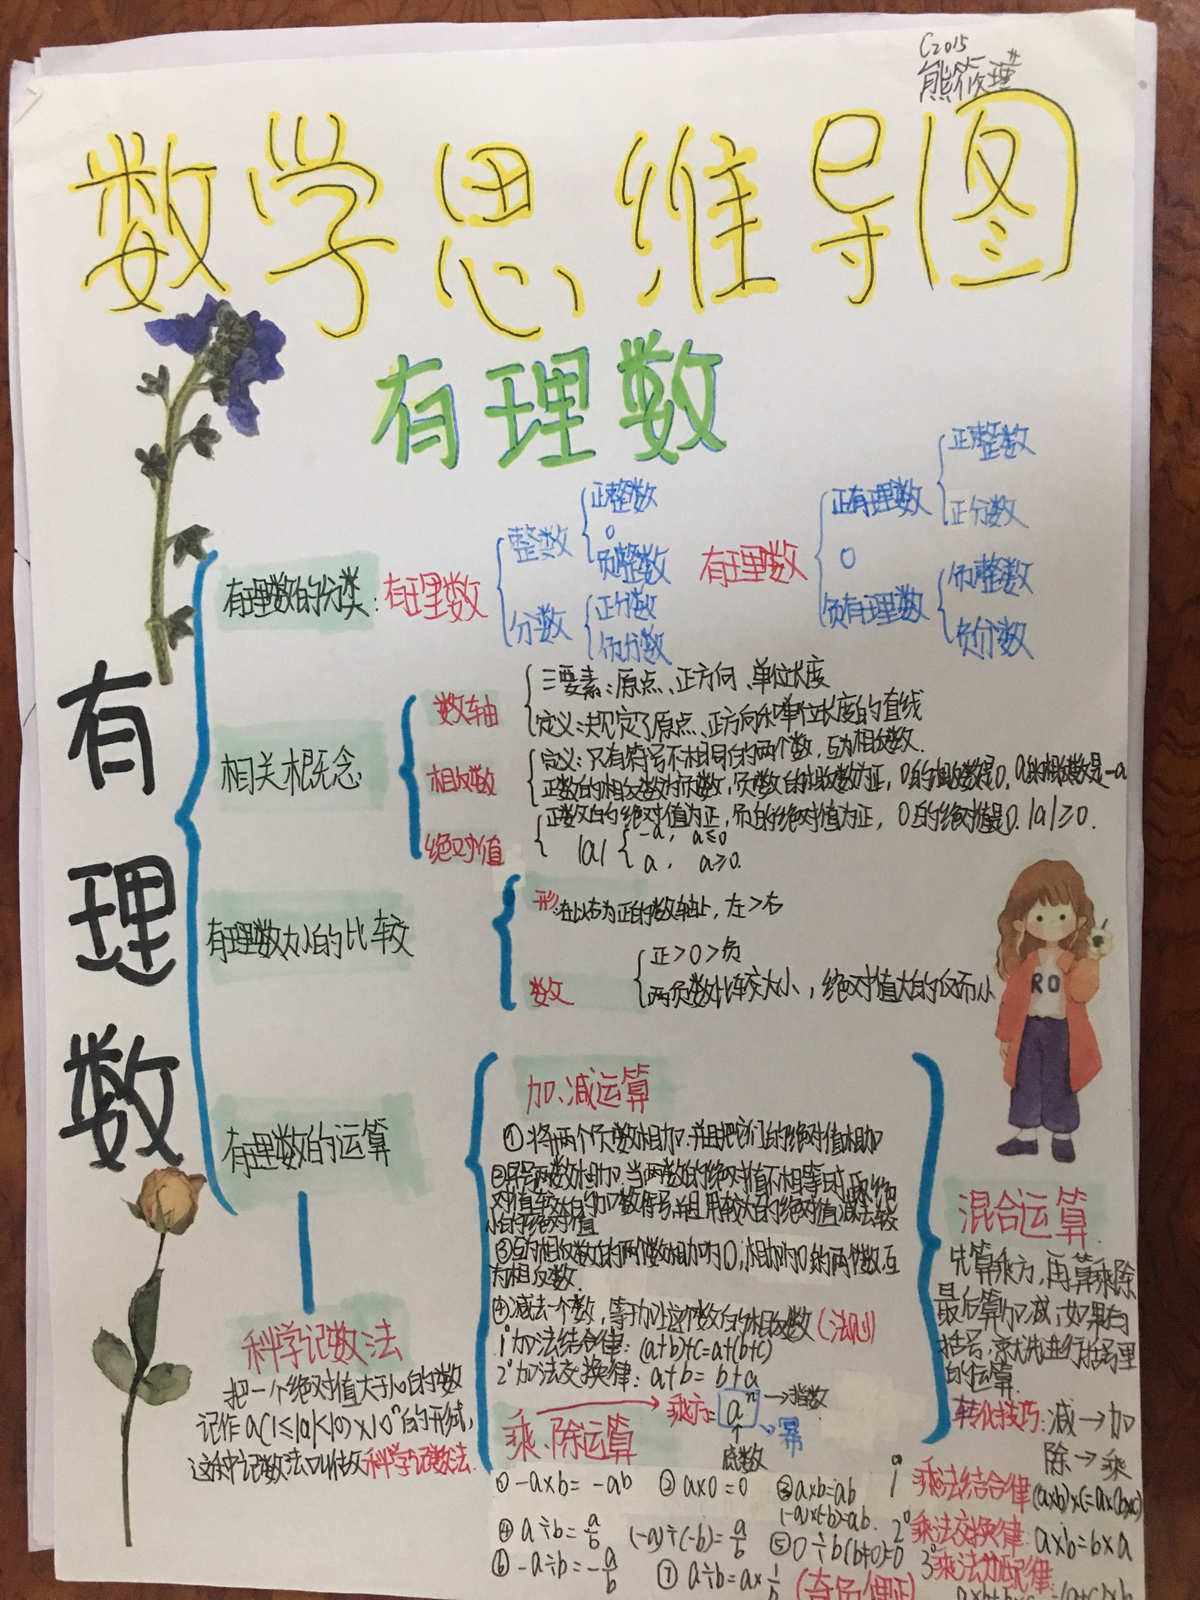 C2015
熊筱
数学思维导图
有理数
有理数
有理数的分类:
有理数
整数
正整数
0
负整数
分数
正分数
负分数
有理数
正有理数
正整数
正分数
0
负有理数
负整数
负分数
相关概念:
数轴
三要素:原点、正方向、单位长度
定义:规定了原点、正方向和单位长度的直线
相反数
定义:只有符号不相同的两个数,互为相反数.
正数的相反数为负数,负数的相反数为正,0的相反数是0,a的相反数是-a
绝对值
正数的绝对值为正,负的绝对值为正,0的绝对值是0.|a|≥0.
|a|
-a, a≤0
a, a≥0.
有理数大小的比较
形:在以右为正的数轴上,左>右
数
正>0>负
两负数比较大小,绝对值大的反而小
有理数的运算
加、减运算
①将两个负数相加,并且把它们的绝对值相加
②异号两数相加,当两数的绝对值不相等时,取绝
对值较大的加数符号,并且用较大的绝对值减去较
小的绝对值
③互为相反数的两个数相加为0,相加为0的两个数互
为相反数.
④减去一个数,等于加上这个数的相反数(法则)
1°加法结合律:(a+b)+c=a+(b+c)
2°加法交换律:a+b=b+a
乘、除运算
乘方:
aⁿ
指数
幂
底数
①-a×b=-ab ②a×0=0 ③a×b=ab
(-a)×(-b)=ab.
④a÷b=a/b (-a)÷(-b)=a/b ⑤0÷b(b≠0)=0
⑥-a÷b=-a/b ⑦a÷b=a×1/b (奇负偶正)
混合运算
先算乘方,再算乘除
最后算加减,如果有
括号,就先进行括号里
的运算.
转化技巧:减→加
除→乘
1°乘法结合律(a×b)×c=a×(b×c)
2°乘法交换律:a×b=b×a
3°乘法分配律:
科学记数法
把一个绝对值大于10的数
记作a(1≤|a|<10)×10ⁿ的形式,
这种记数法叫做科学记数法.